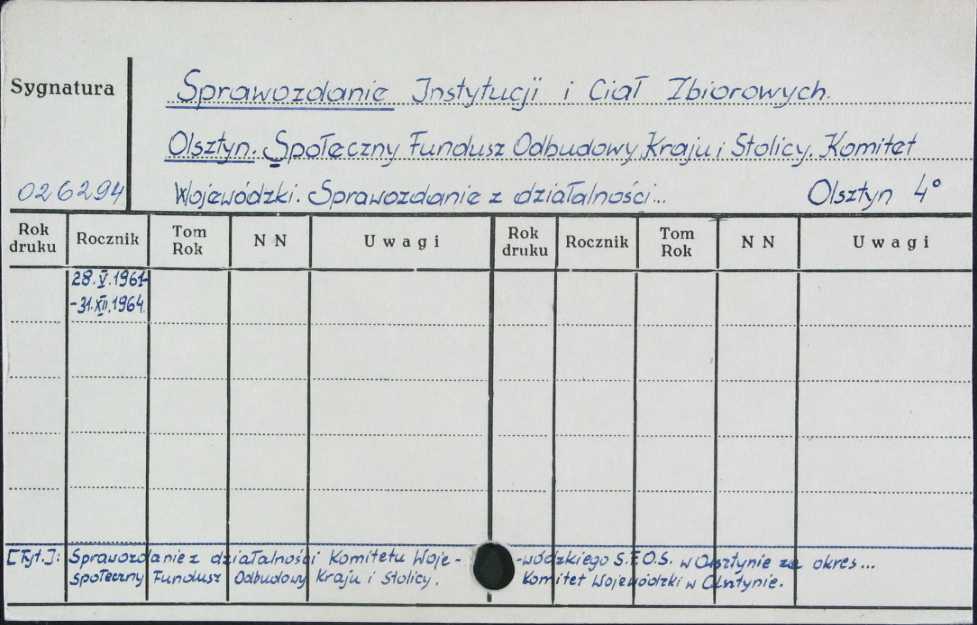 Sygnatura
Sprawozdanie Instytucji i Ciał Zbiorowych.
Olsztyn. Społeczny Fundusz Odbudowy Kraju i Stolicy. Komitet
026294 Wojewódzki. Sprawozdanie z działalności... Olsztyn 4°
Rok druku Rocznik Tom Rok N N Uwagi Rok druku Rocznik Tom Rok N N Uwagi
28.V.1961-
-31.XII.1964.
[Tyt.]: Sprawozdanie z działalności Komitetu Woje- -wódzkiego S.F.O.S. w Olsztynie za okres...
Społeczny Fundusz Odbudowy Kraju i Stolicy. Komitet Wojewódzki w Olsztynie.